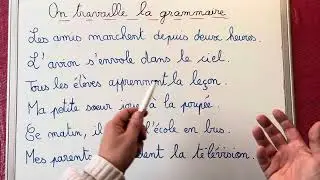 On travaille la grammaire
Les amis marchent depuis deux heures.
L'avion s'envole dans le ciel.
Tous les élèves apprennent la leçon.
Ma petite sœur joue à la poupée.
Ce matin, il l'école en bus.
Mes parents la télévision.